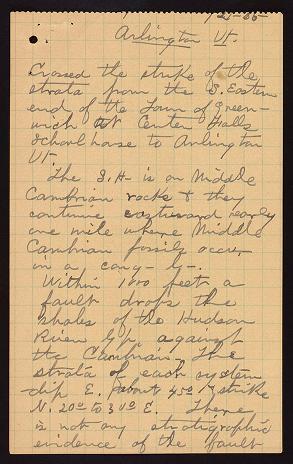 Arlington Vt.
Crossed the strike of the
strata from the S. Eastern
end of the town of Green-
wich at Center Falls
School house to Arlington
Vt.
The S.H. is on Middle
Cambrian rocks & they
continue eastward nearly
one mile where Middle
Cambrian fossils occur
in a cong-ly-.
Within 1000 feet a
fault drops the
shales of the Hudson
River Gp. against
the Cambrian. The
strata of each system
dip E. about 45° & strike
N. 20° to 30° E. There
is not any stratigraphic
evidence of the fault